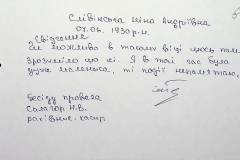 Слівінська Ніна Андріївна
07.06.1930 р.н.
Свідчення
Це можливо в такому віці щось там
зрозуміло що лі. Я в той час була
дуже маленька, ті події непам'ятаю.
Бесіду провела
Н.В.
рахівник-касир